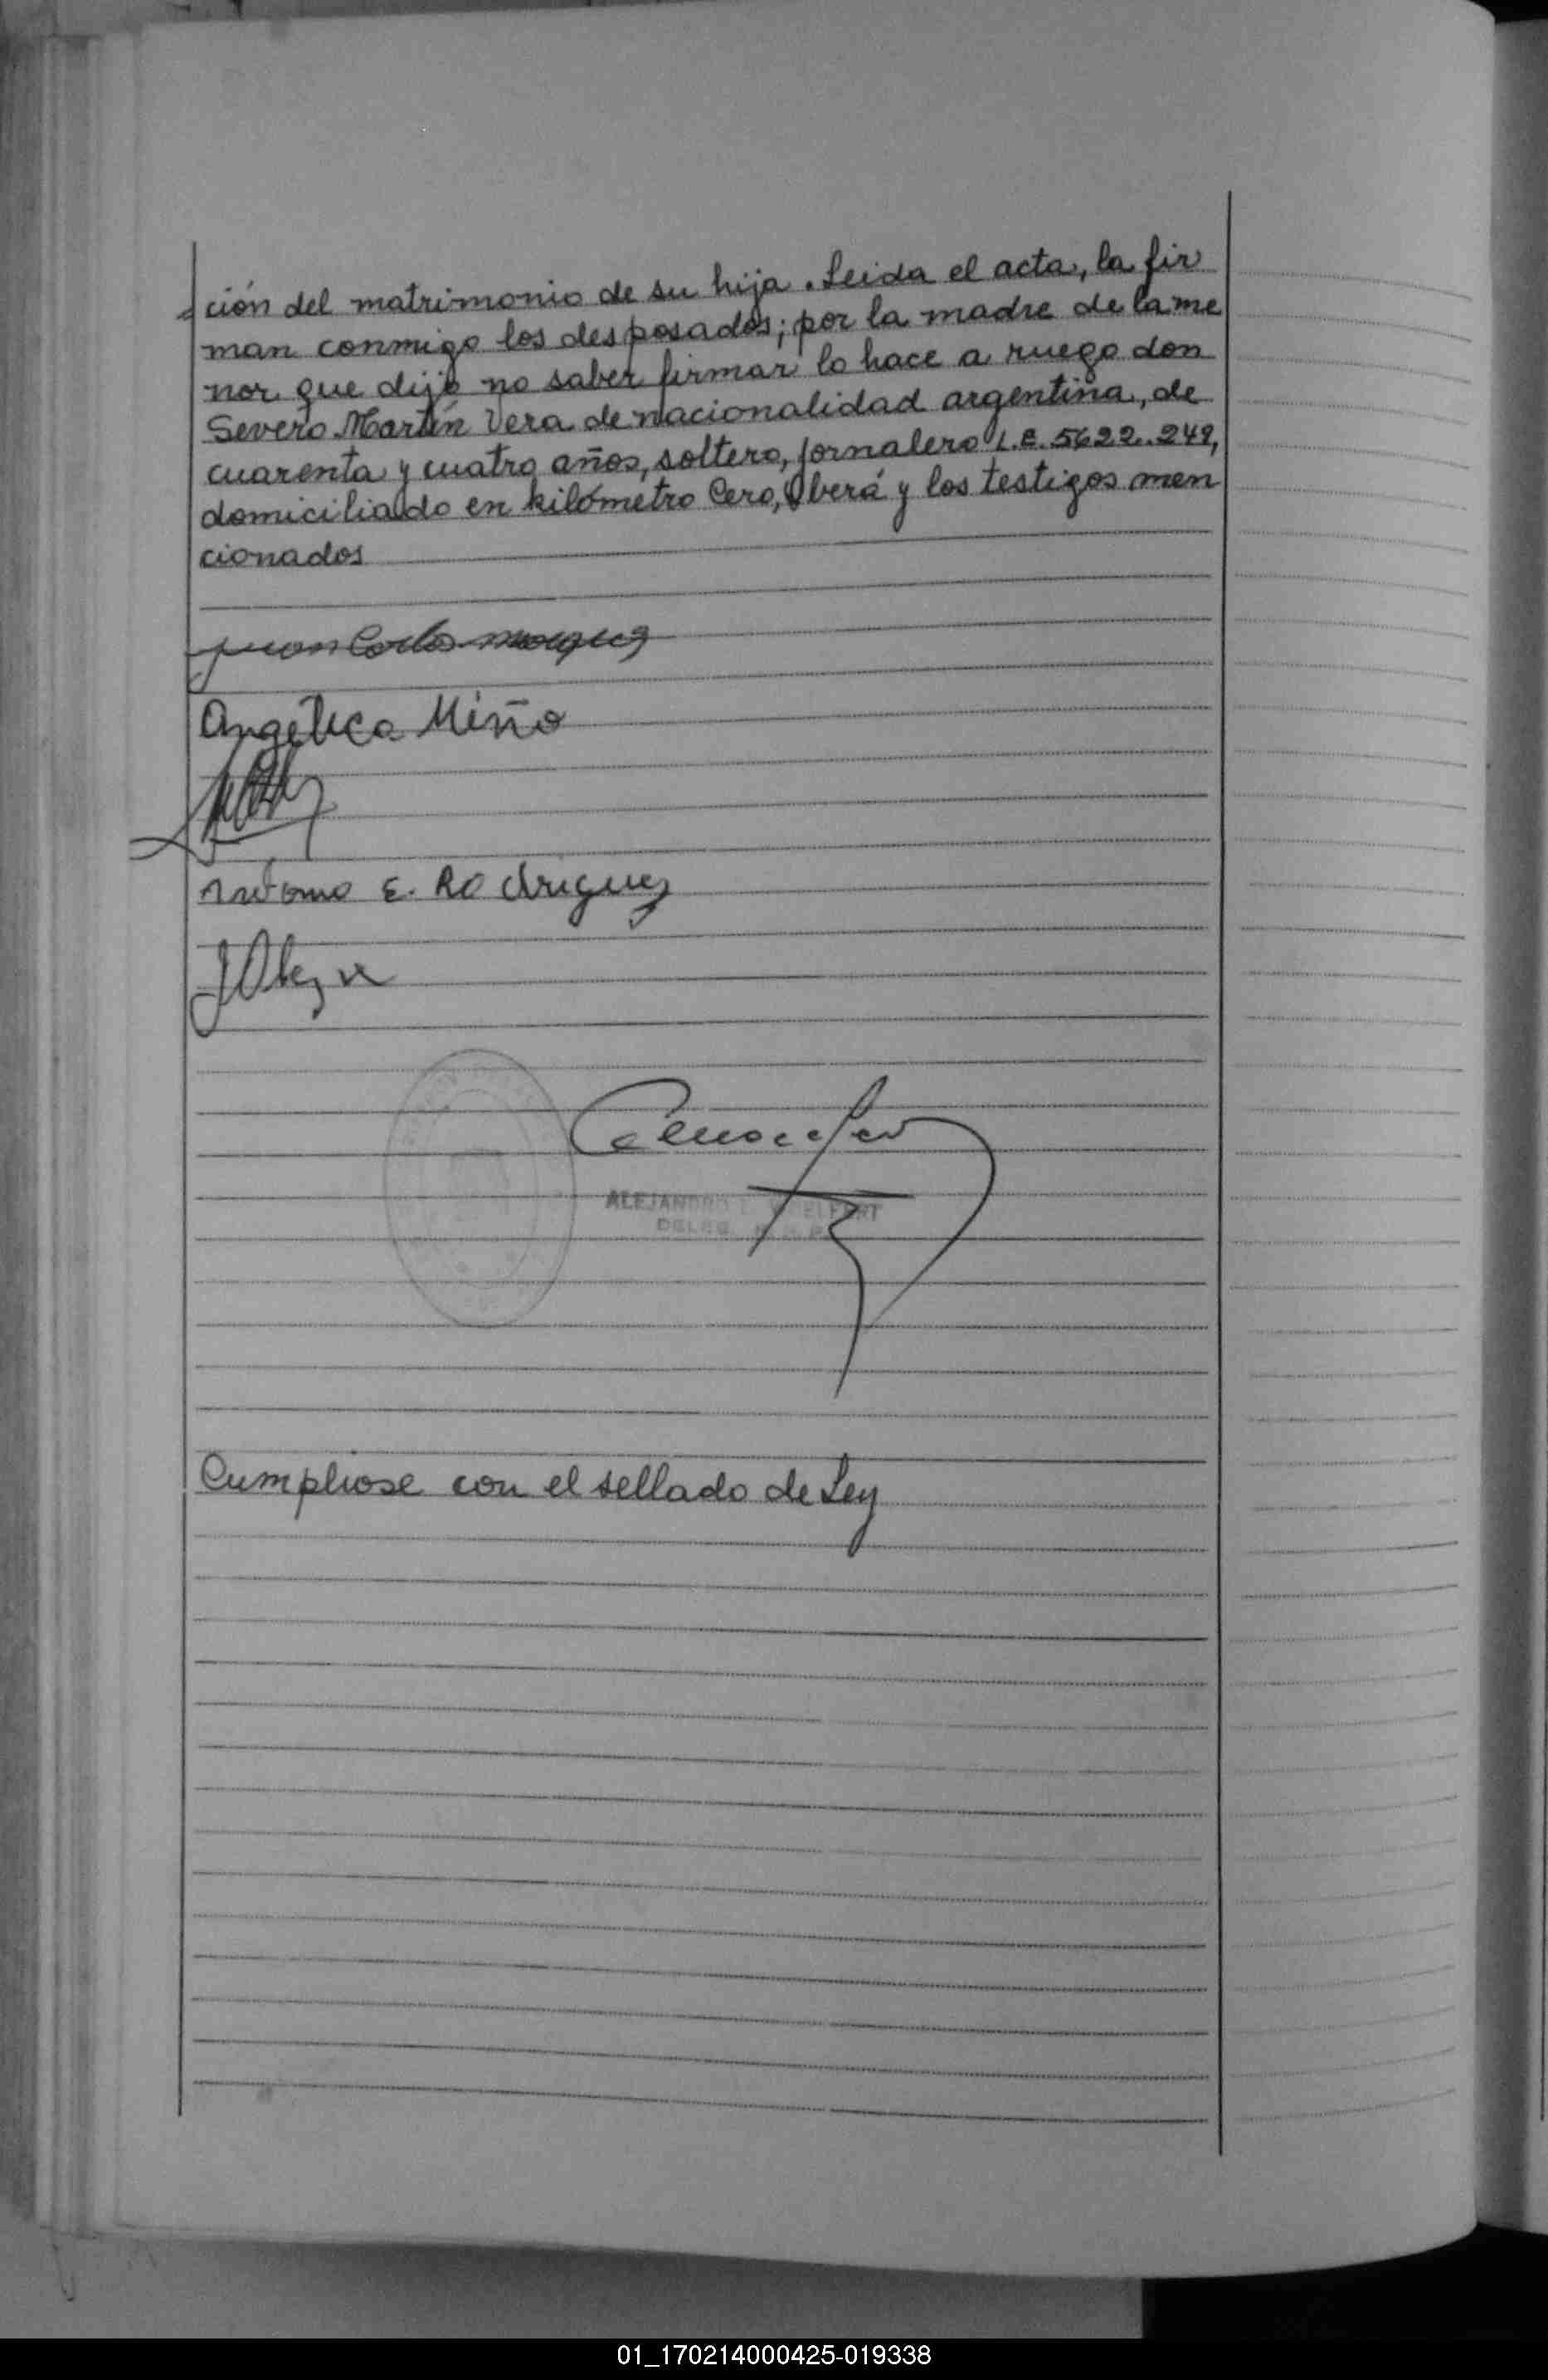 ción del matrimonio de su hija. Leida el acta, la fir
man conmigo los desposados; por la madre de la me
nor que dijo no saber firmar lo hace a ruego don
Severo Martín Vera de nacionalidad argentina, de
cuarenta y cuatro años, soltero, jornalero L.E. 5622.249,
domiciliado en kilómetro Cero, Oberá y los testigos men
cionados
Juan Carlos
Angélica Miño
Antonio E. Rodriguez
ALEJANDRO
Cumpliose con el sellado de Ley
01_170214000425-019338